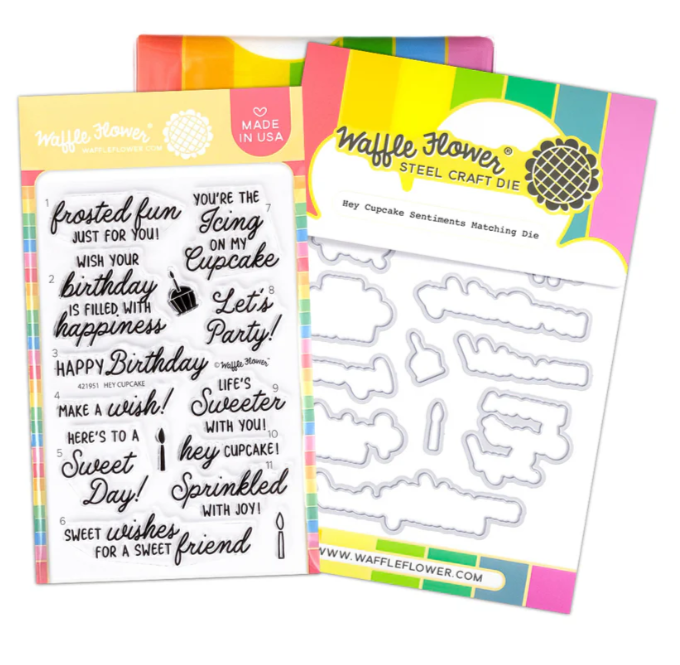 Waffle Flower®
WAFFLEFLOWER.COM
MADE
IN USA
1
frosted fun
JUST FOR YOU!
2
WISH YOUR
birthday
IS FILLED WITH
happiness
3
HAPPY Birthday
©Waffle Flower®
421951 HEY CUPCAKE
4
MAKE A wish!
5
HERE'S TO A
Sweet
Day!
6
SWEET wishes
FOR A SWEET friend
7
YOU'RE THE
Icing
ON MY
Cupcake
8
Let's
Party!
9
LIFE'S
Sweeter
WITH YOU!
10
hey CUPCAKE!
11
Sprinkled
WITH JOY!
Waffle Flower®
STEEL CRAFT DIE
Hey Cupcake Sentiments Matching Die
WWW.WAFFLEFLOWER.COM